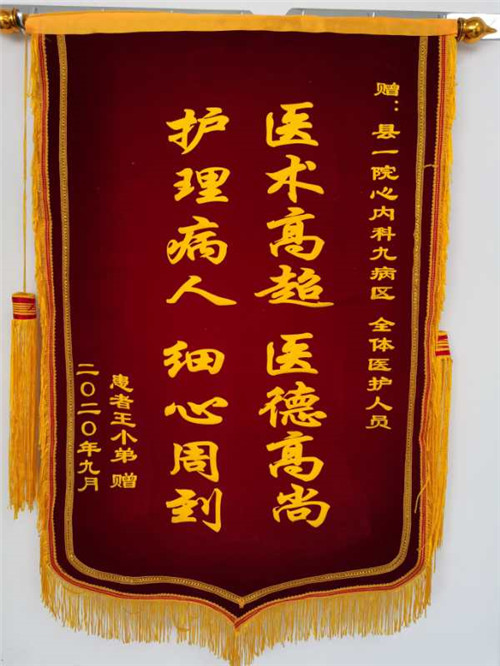 赠：县一院心内科九病区 全体医护人员
医术高超 医德高尚
护理病人 细心周到
患者王小弟 赠
二〇二〇年九月